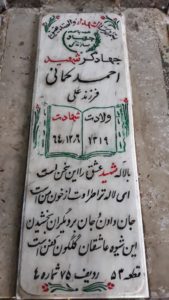 جهادگر شهید
احمد کمانی
فرزند علی
ولادت شهادت
۱۳۱۹ ۶۴/۱۲/۶
با لاله شهید عشق را این سخن است
ای لاله ترا طراوت از خون من است
جان دادن و جان بر دیگران بخشیدن
این شیوه عاشقان گلگون کفن است
قطعه ۵۳ ردیف ۷۵ شماره ۴